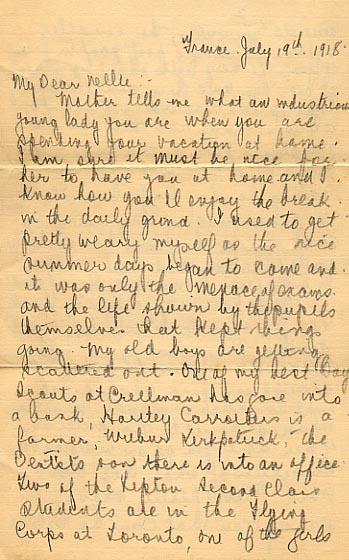 France. July 19th, 1918.
My Dear Nellie:-
Mother tells me what an industrious
young lady you are when you are
spending your vacation at home.
I am sure it must be nice for
her to have you at home and I
know how you'll enjoy the break
in the daily grind. I used to get
pretty weary myself as the nice
summer days began to come and
it was only the menace of exams
and the life shown by the pupils
themselves that kept things
going. My old boys are getting
scattered out. One of my best Boy
Scouts at Crellman has gone into
a bank, Hartley Carrothers is a
farmer, Wilbur Kirkpatrick, the
Dentist's son there is into an office.
Two of the Lipton Second Class
students are in the Flying
Corps at Toronto, one of the girls